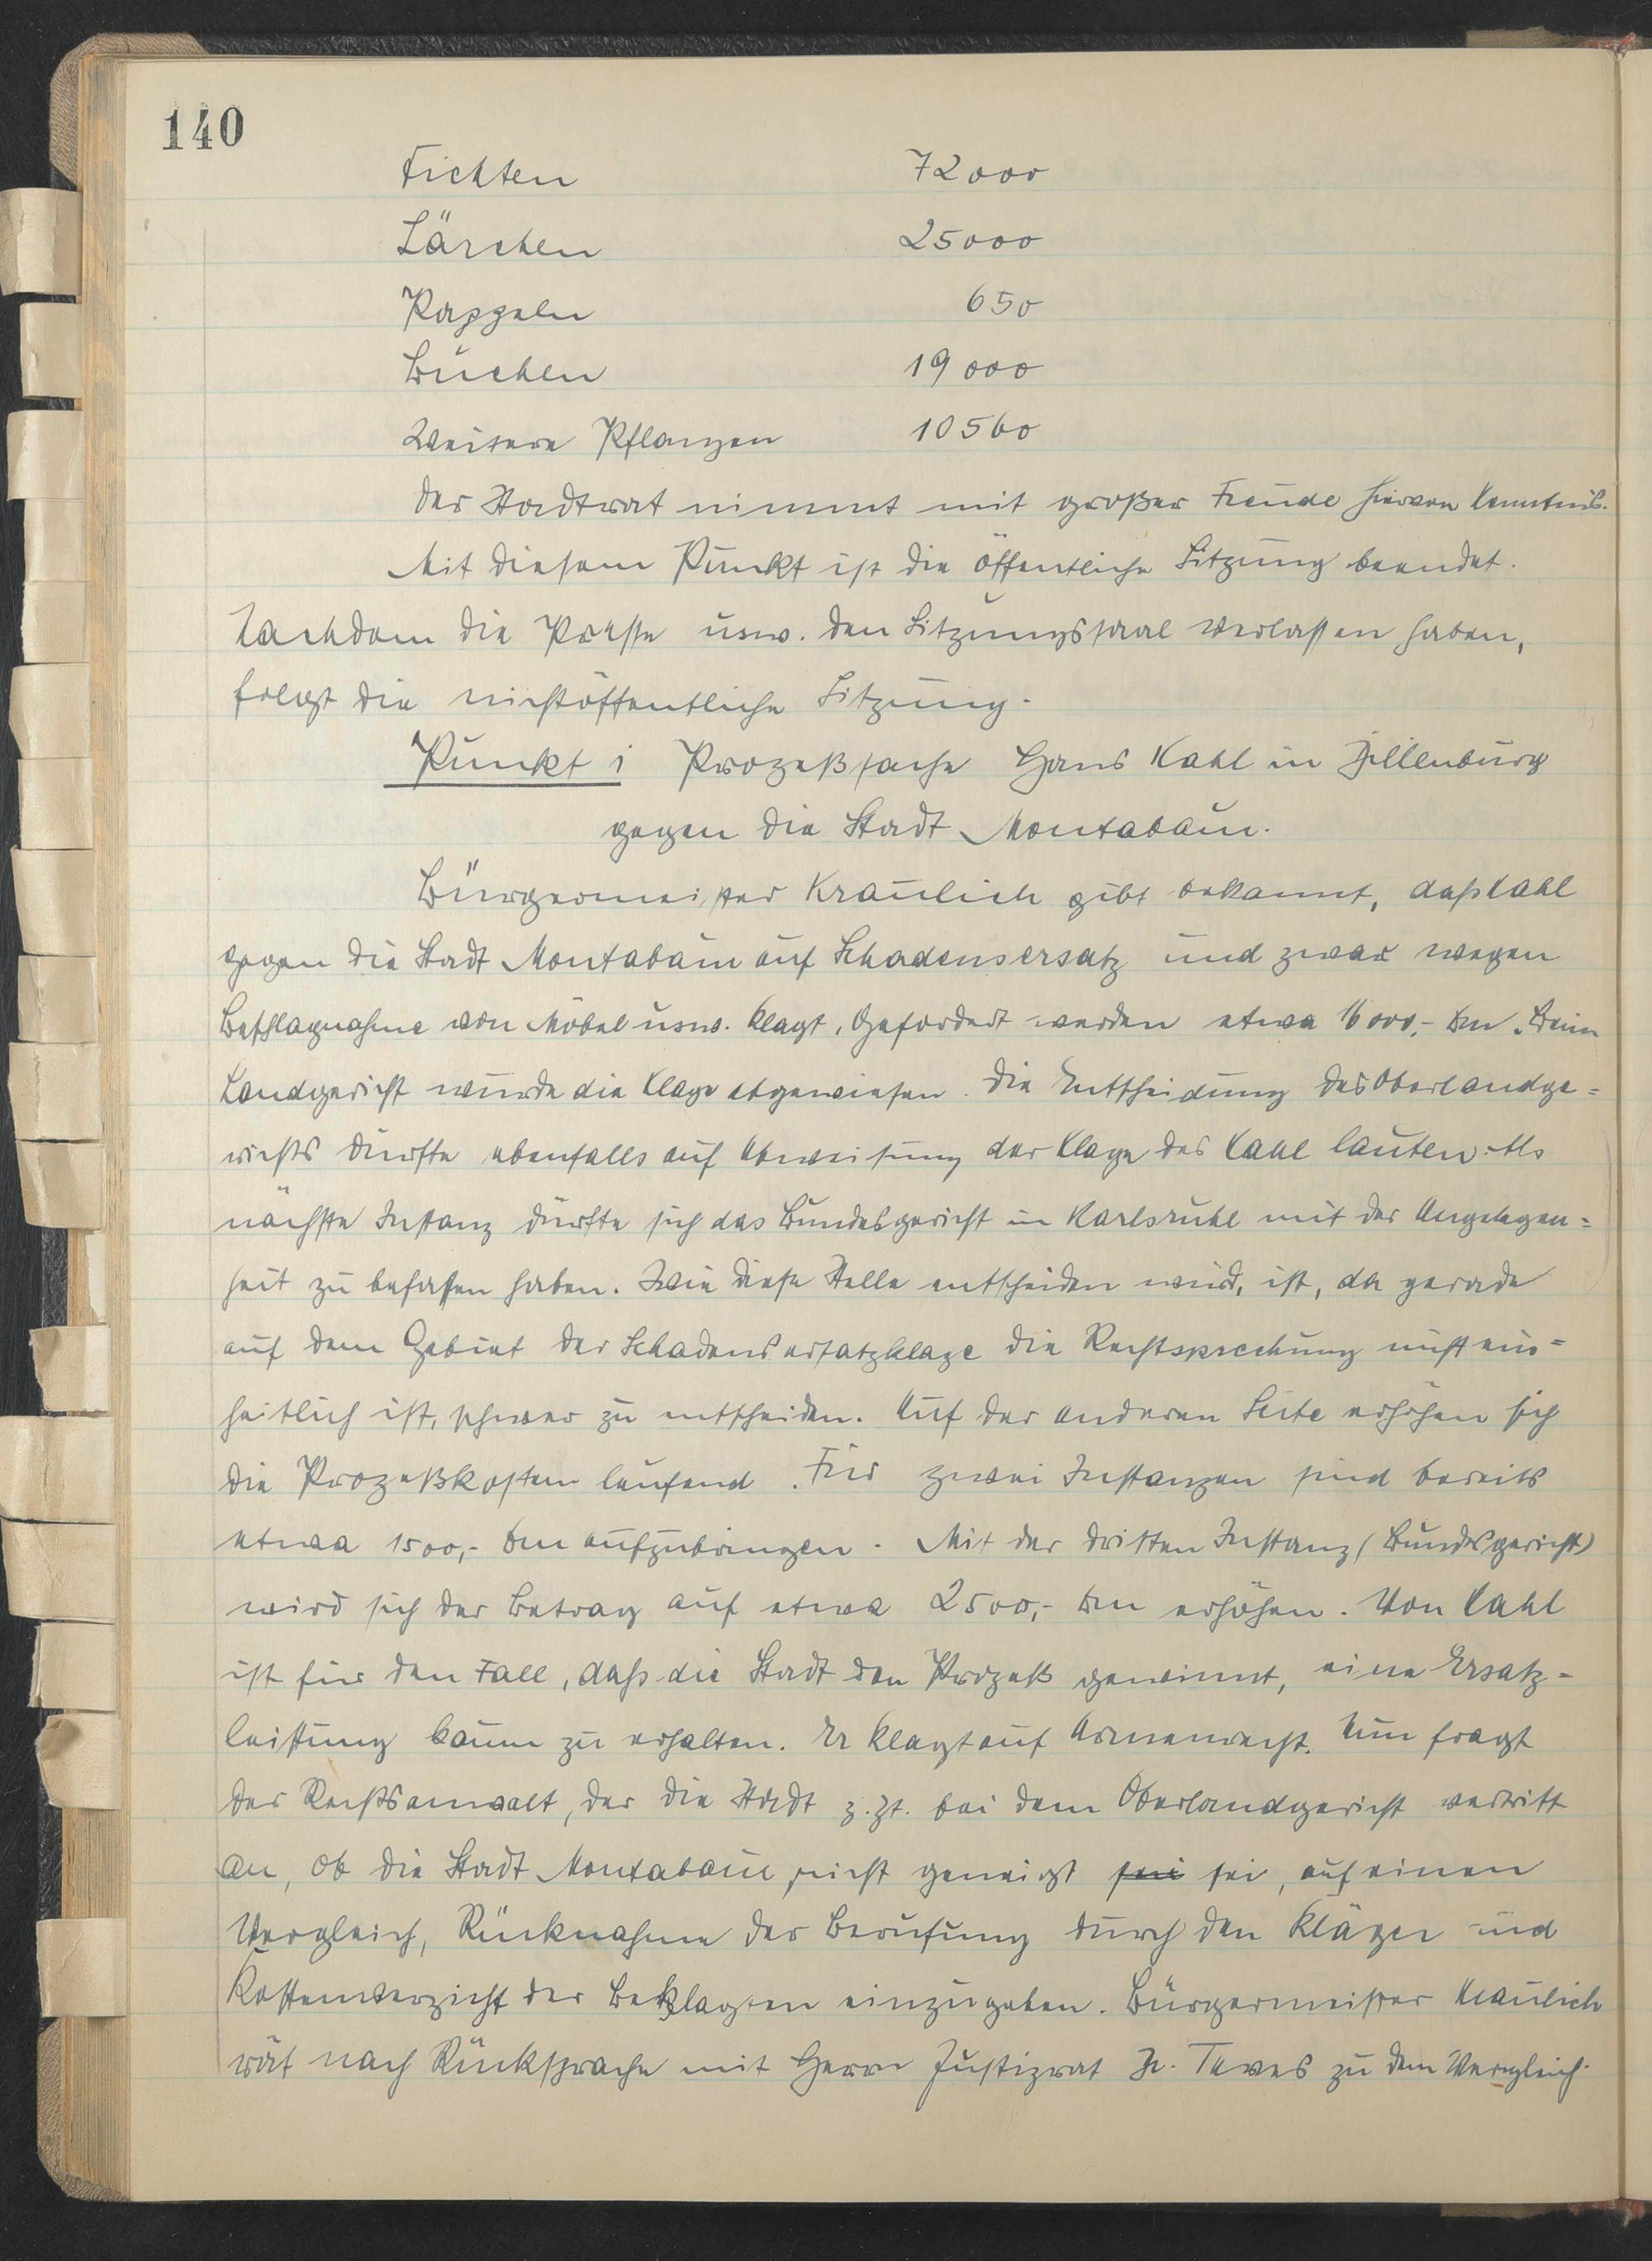 140
Fichten 72000
Lärchen 25000
Pappeln 650
Buchen 19000
Weitere Pflanzen 10560
Der Stadtrat nimmt mit großer Freude hiervon Kenntnis.
Mit diesem Punkt ist die öffentliche Sitzung beendet.
Nachdem die Presse usw. den Sitzungssaal verlassen haben,
folgt die nichtöffentliche Sitzung.
Punkt 1 Prozeßsache Hans Kahl in Dillenburg
gegen die Stadt Montabaur.
Bürgermeister Kraulich gibt bekannt, daß Kahl
gegen die Stadt Montabaur auf Schadensersatz und zwar wegen
Beschlagnahme von Möbel usw. klagt. Gefordert werden etwa 16000,- DM. Beim
Landgericht wurde die Klage abgewiesen. Die Entscheidung des Oberlandge=
richts dürfte ebenfalls auf Abweisung der Klage des Kahl lauten. Als
nächste Instanz dürfte sich das Bundesgericht in Karlsruhe mit der Angelegen=
heit zu befassen haben. Wie diese Stelle entscheiden wird, ist, da gerade
auf dem Gebiet der Schadensersatzklage die Rechtsprechung nicht ein=
heitlich ist, schwer zu entscheiden. Auf der anderen Seite erhöhen sich
die Prozeßkosten laufend. Für zwei Instanzen sind bereits
etwa 1500,- DM aufzubringen. Mit der dritten Instanz (Bundesgericht)
wird sich der Betrag auf etwa 2500,- DM erhöhen. Von Kahl
ist für den Fall, daß die Stadt den Prozeß gewinnt, eine Ersatz=
leistung kaum zu erhalten. Er klagt auf Armenrecht. Nun fragt
der Rechtsanwalt, der die Stadt z.Zt. bei dem Oberlandgericht vertritt
an, ob die Stadt Montabaur nicht geneigt sei sei, auf einen
Vergleich, Rücknahme der Berufung durch den Kläger und
Kostenverzicht der Beklagten einzugehen. Bürgermeister Kraulich
rät nach Rücksprache mit Herrn Justizrat Dr. Teves zu dem Vergleich.